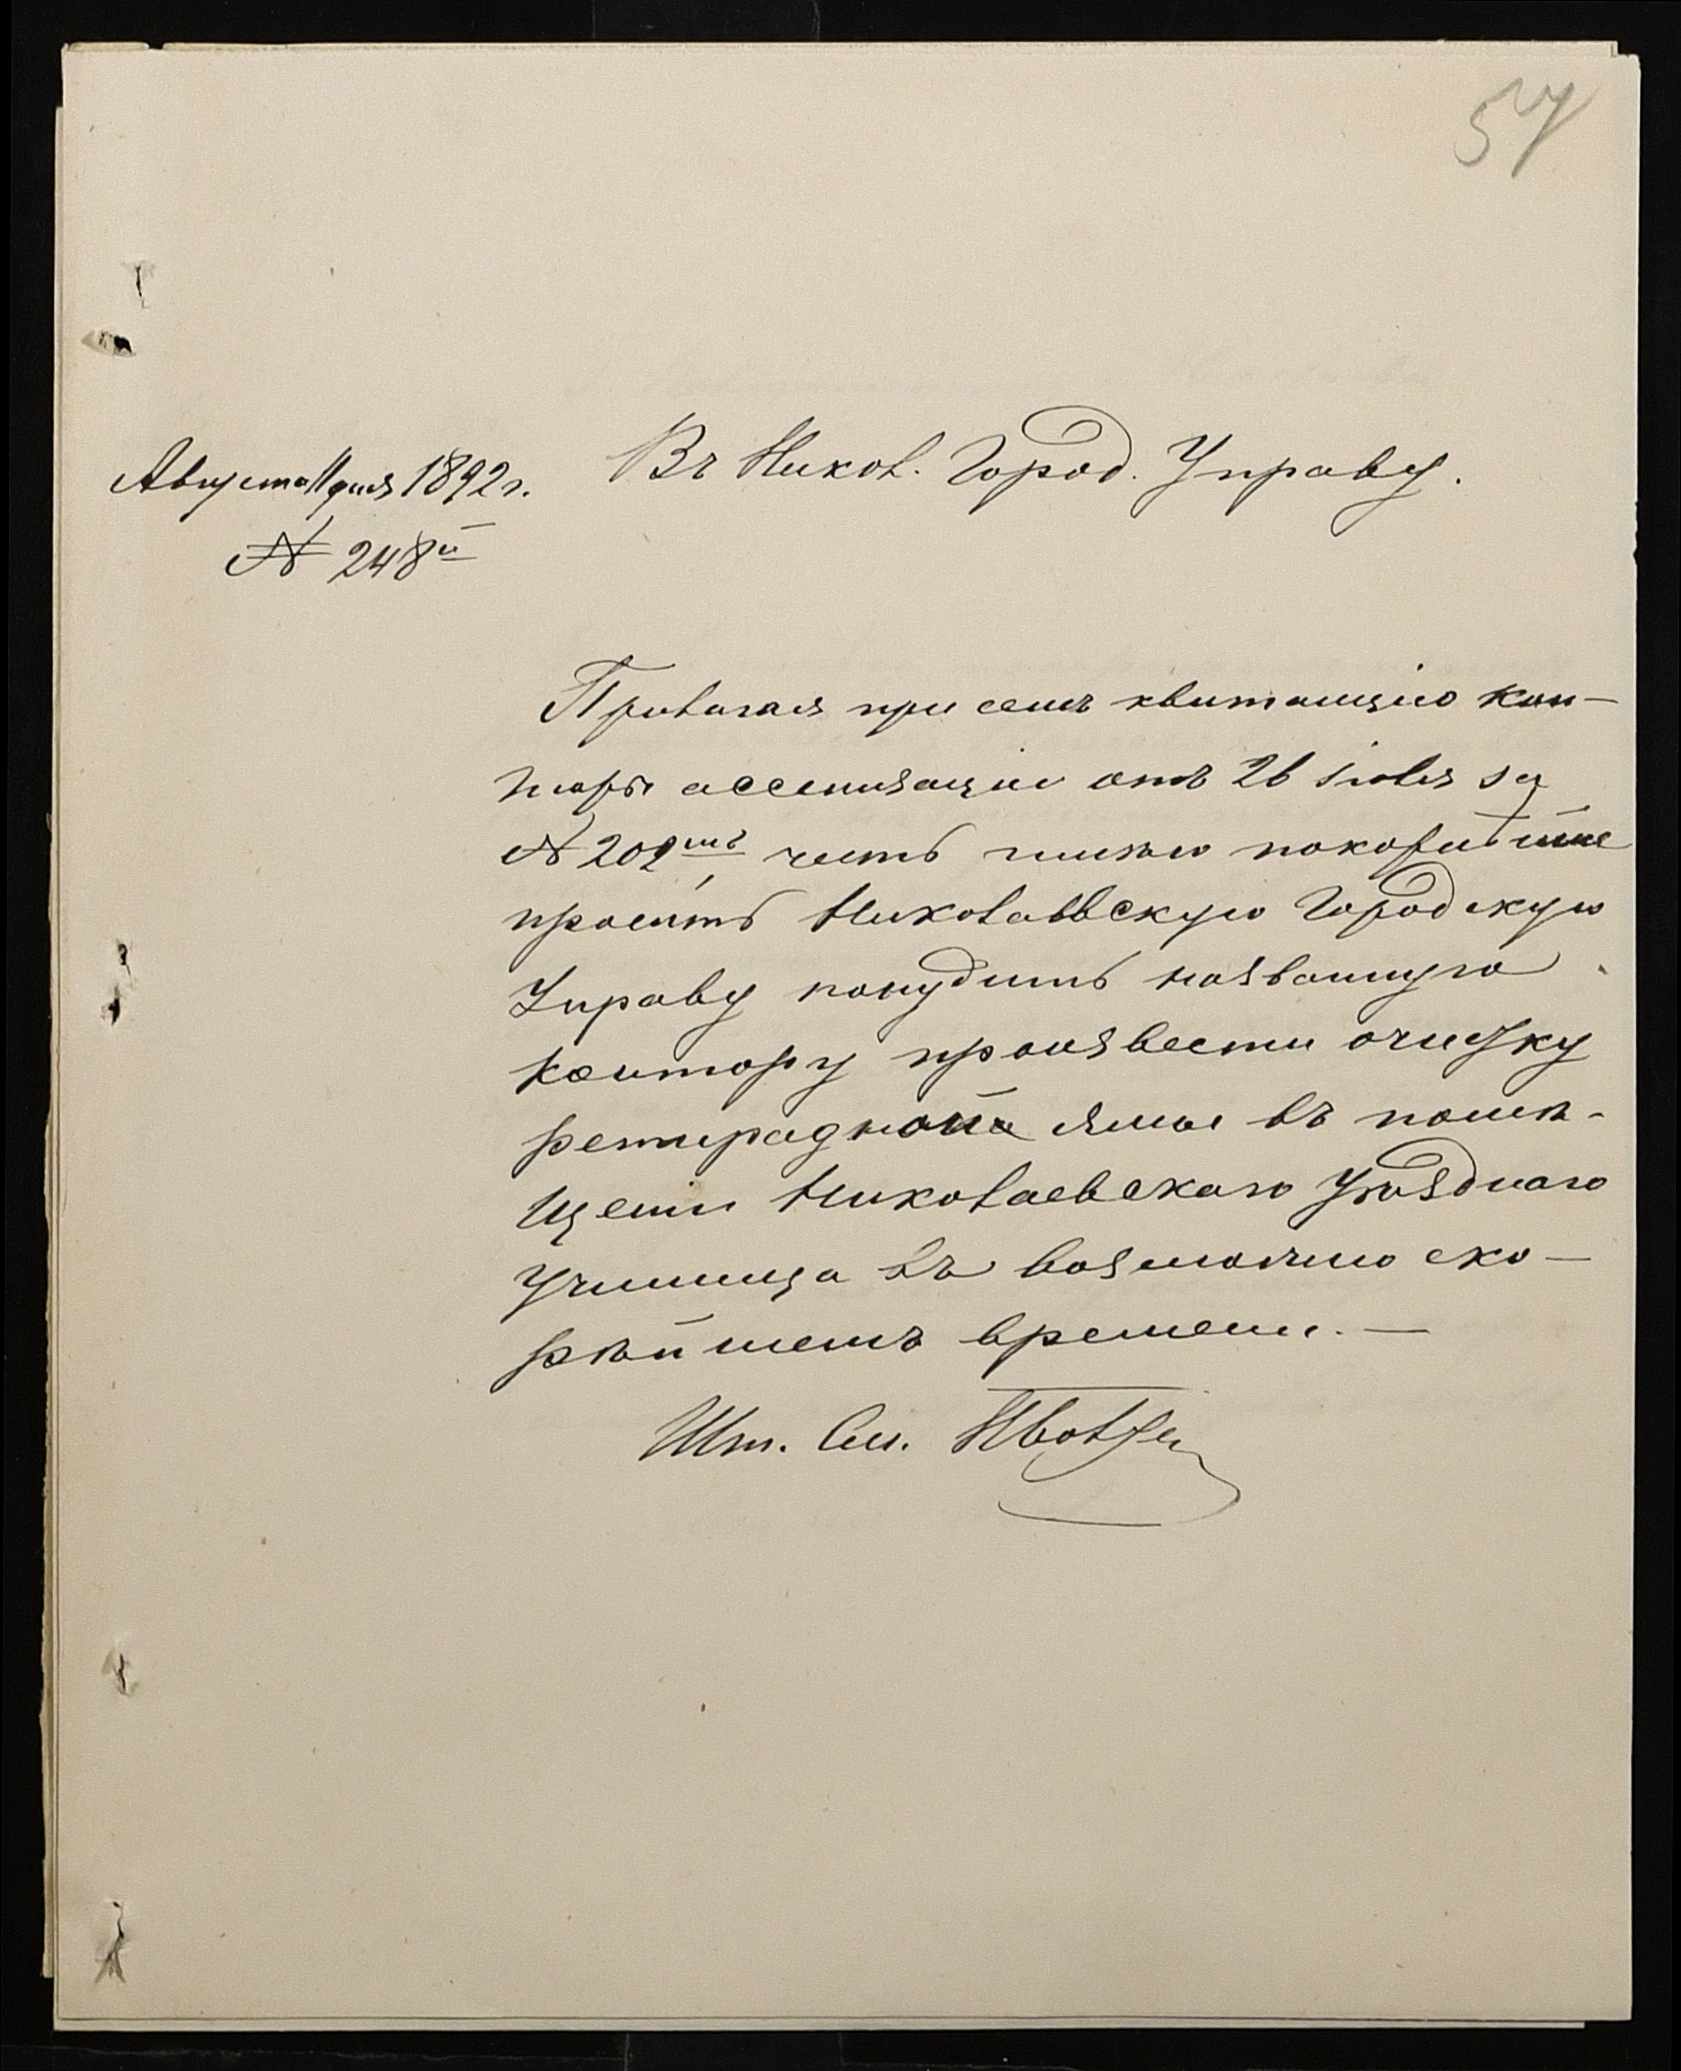 57
Августа 11 дня 1892 г.
№ 248й
Въ Никол. Город. Управу.
Прилагая при семъ квитанцію кон-
торы ассенизаціи отъ 26 іюля за
№ 202мъ, честь имѣю покорнѣйше
просить Николаевскую Городскую
Управу понудить названную
контору произвести очистку
ретирадной ямы въ помѣ-
щеніи Николаевскаго Уѣзднаго
Училища въ возможно ско-
рѣйшемъ времени. —
Шт. См.